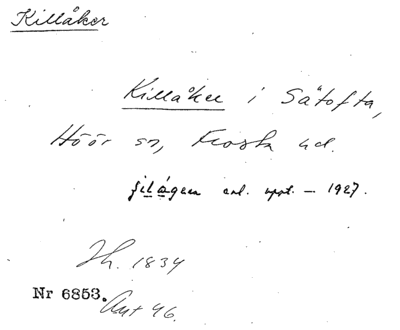 Killåker
Killåker i Sätofta,
Höör sn, Frosta hd.
enl. uppt. – 1927.
Jh. 1834
Nr 6853.
Ant 46.